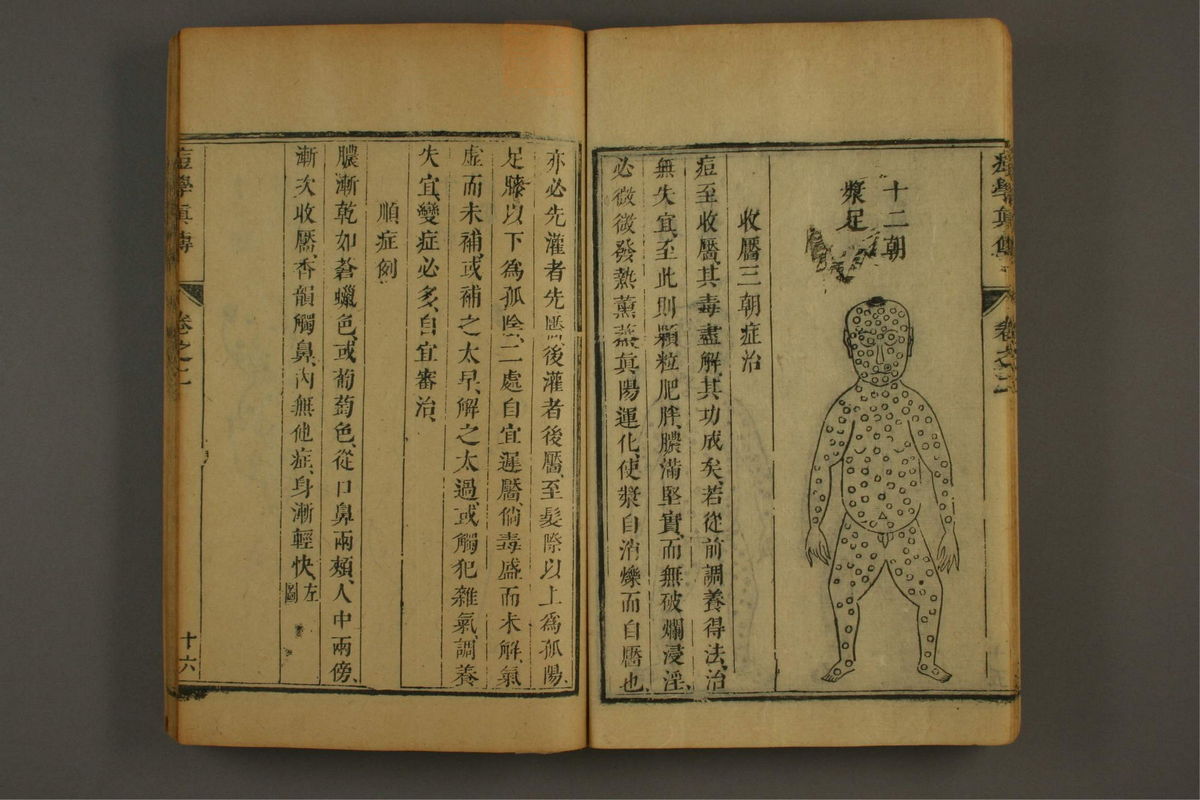 痘學眞傳
卷之二
十二朝
漿足
收靨三朝症治
痘至收靨、其毒盡解、其功成矣、若從前調養得法、治
無失宜、至此則顆粒肥胖、膿滿堅實、而無破爛浸淫、
必微微發熱薰蒸、眞陽運化、使漿自消爍而自靨也、
亦必先灌者先靨、後灌者後靨、至髮際以上爲孤陽、
足膝以下爲孤陰、二處自宜遲靨、倘毒盛而未解、氣
虛而未補、或補之太早、解之太過、或觸犯雜氣、調養
失宜、變症必多、自宜審治、
順症例
膿漸乾如蒼蠟色、或葡萄色、從口鼻兩頰、人中兩傍、
漸次收靨、香韻觸鼻、內無他症、身漸輕快、左圖
痘學眞傳
卷之二
十六